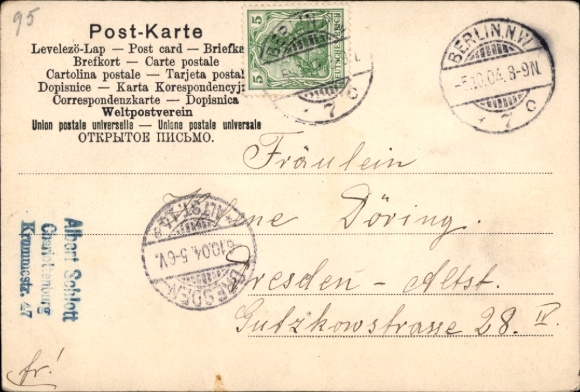 95
Post-Karte
Levelező-Lap — Post card — Briefka
Brefkort — Carte postale
Cartolina postale — Tarjeta postal
Dopisnice — Karta Korespondencyj
Correspondenzkarte — Dopisnica
Weltpostverein
Union postale universelle — Unione postale universale
ОТКРЫТОЕ ПИСЬМО.
5 5
BERLIN, N.W.
5.10.04. 8-9N.
7 c
7 c
Fräulein
Helene Döring.
Dresden - Altst.
Gutzkowstrasse 28. IV.
DRESDEN
ALTST.
6.10.04. 5-6V.
Albert Schlott
Charlottenburg
Krummestr. 47
fr!